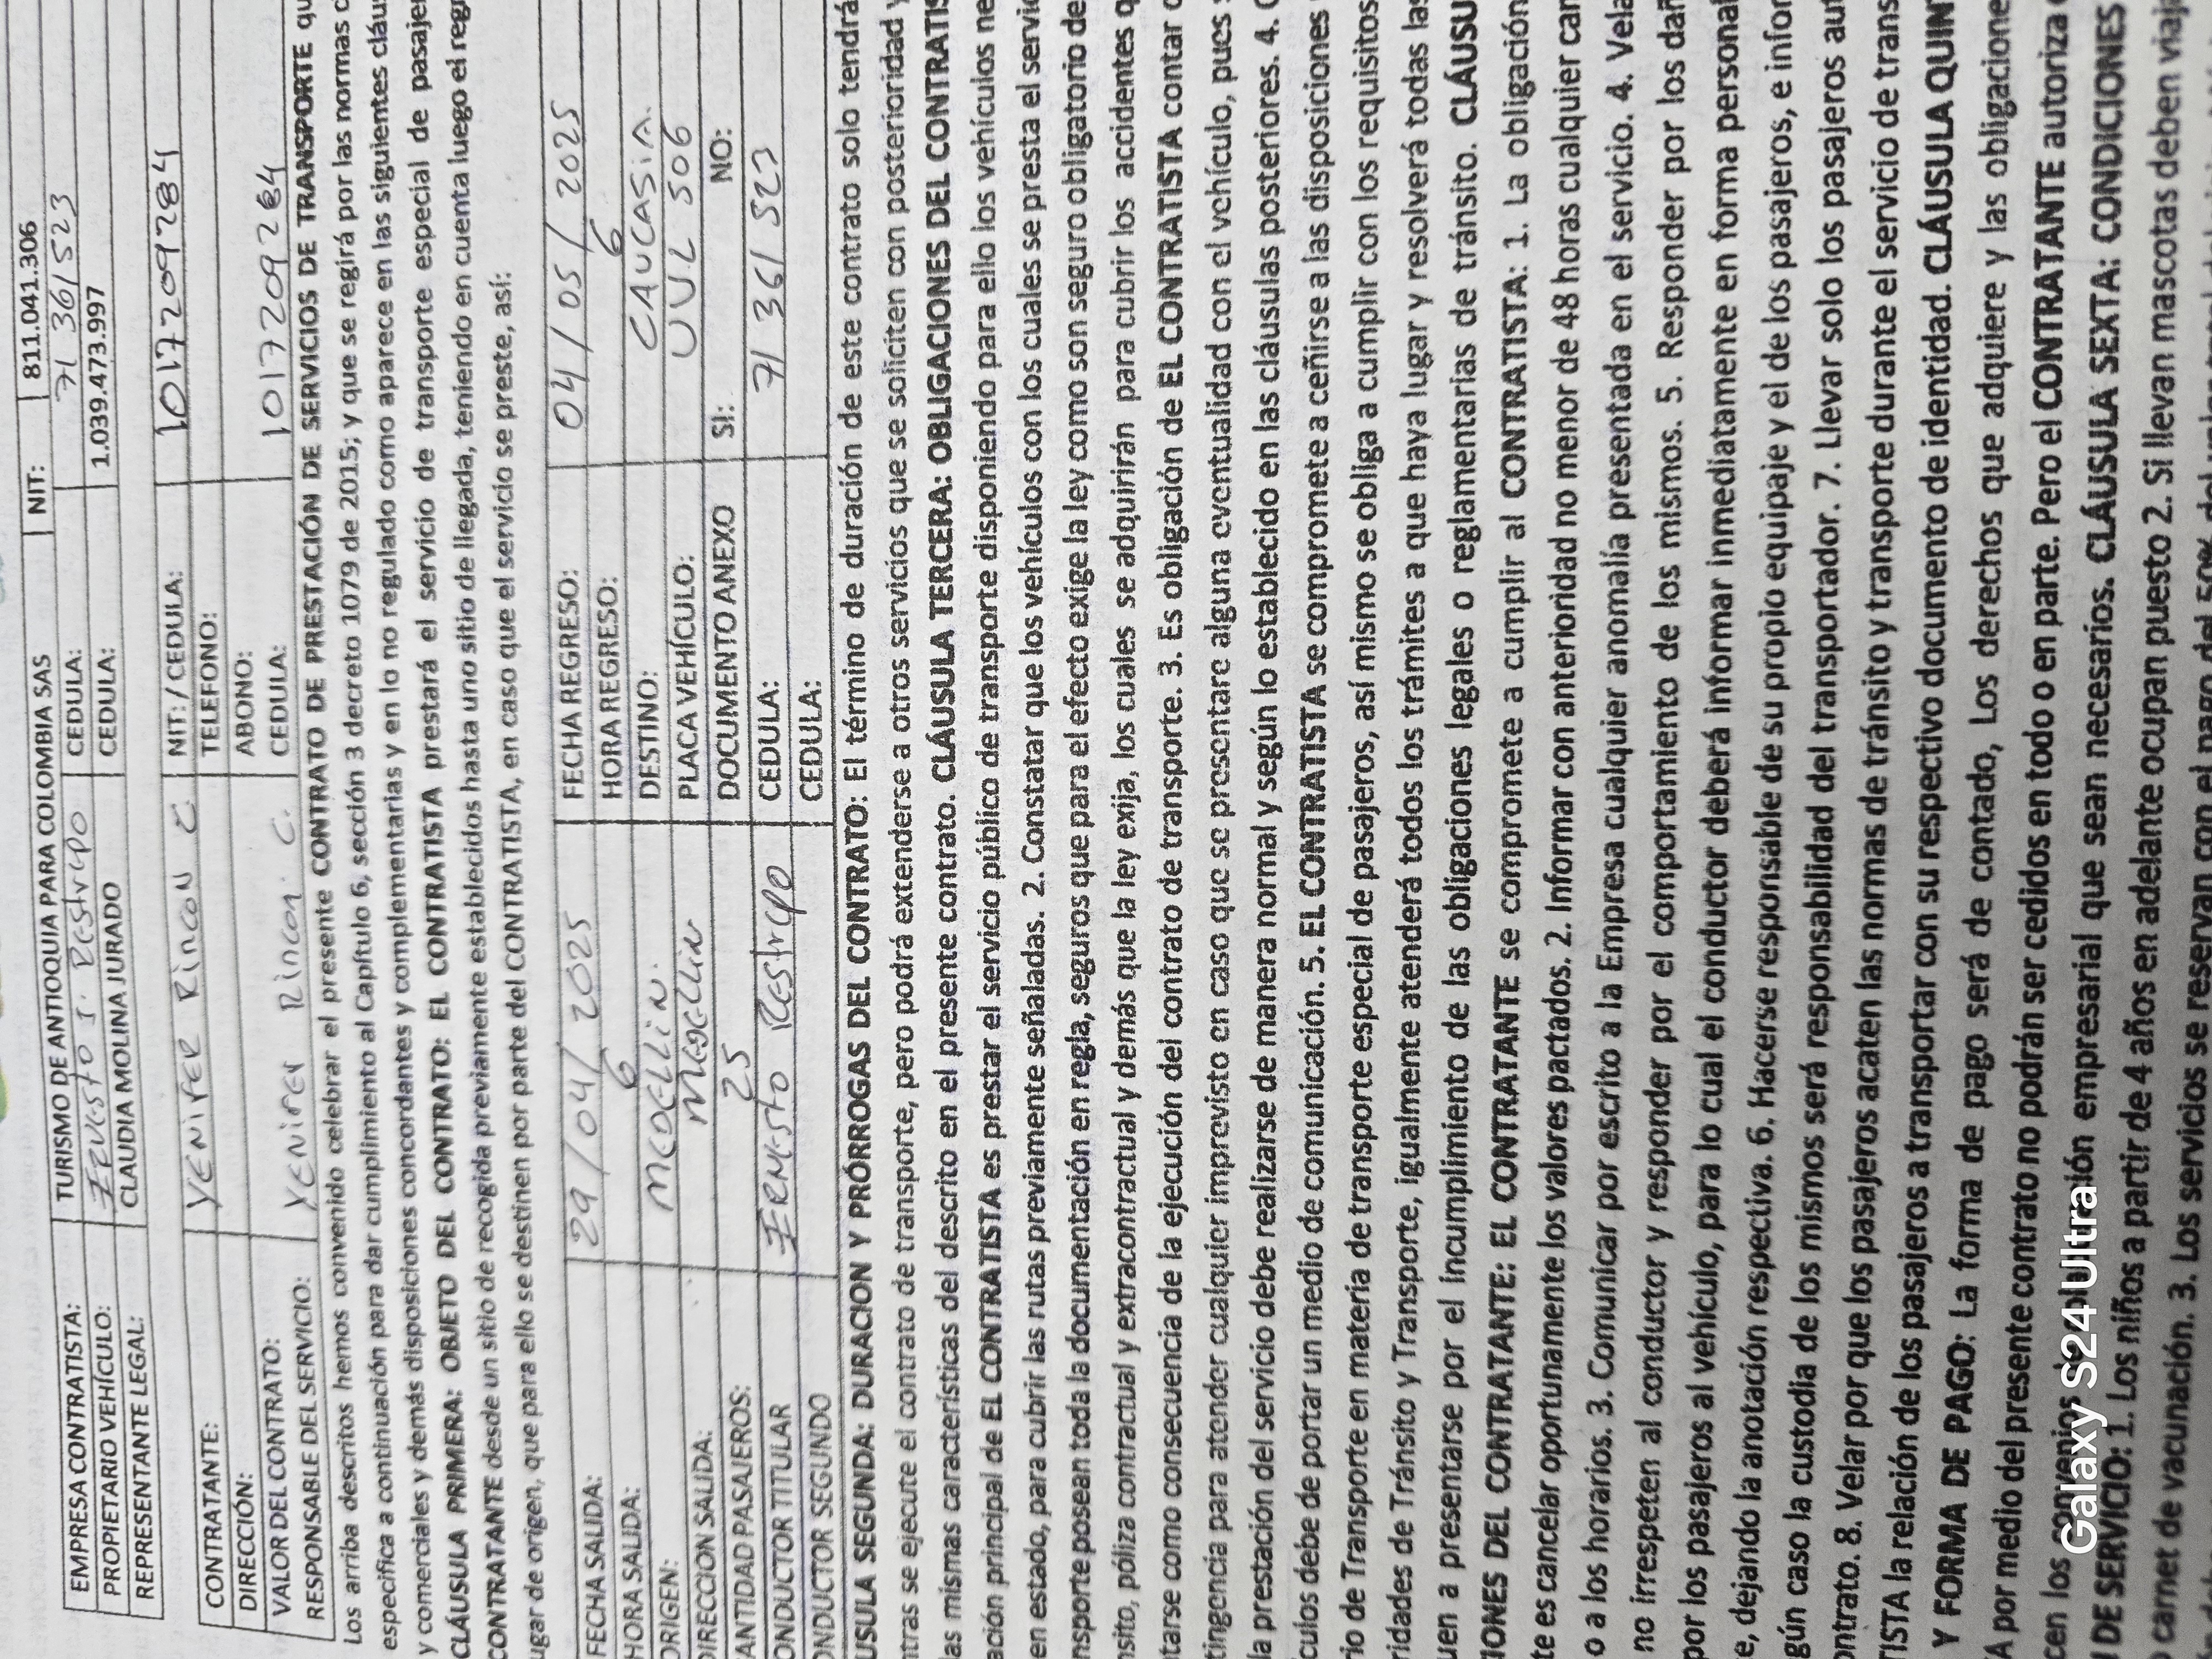 EMPRESA CONTRATISTA: TURISMO DE ANTIOQUIA PARA COLOMBIA SAS NIT: 811.041.306
PROPIETARIO VEHÍCULO: Ernesto J. Restrepo CEDULA: 71 361 523
REPRESENTANTE LEGAL: CLAUDIA MOLINA JURADO CEDULA: 1.039.473.997
CONTRATANTE: YENIFER RINCON C NIT: / CEDULA: 1017209284
DIRECCIÓN: TELEFONO:
VALOR DEL CONTRATO: ABONO:
RESPONSABLE DEL SERVICIO: YENIFER Rincon C. CEDULA: 1017209284
Los arriba descritos hemos convenido celebrar el presente CONTRATO DE PRESTACIÓN DE SERVICIOS DE TRANSPORTE qu
especifica a continuación para dar cumplimiento al Capítulo 6, sección 3 decreto 1079 de 2015; y que se regirá por las normas c
y comerciales y demás disposiciones concordantes y complementarias y en lo no regulado como aparece en las siguientes cláus
CLÁUSULA PRIMERA: OBJETO DEL CONTRATO: EL CONTRATISTA prestará el servicio de transporte especial de pasajer
CONTRATANTE desde un sitio de recogida previamente establecidos hasta uno sitio de llegada, teniendo en cuenta luego el regr
ugar de origen, que para ello se destinen por parte del CONTRATISTA, en caso que el servicio se preste, así:
FECHA SALIDA: 29/04/2025 FECHA REGRESO: 04/05/2025
HORA SALIDA: 6 HORA REGRESO: 6
ORIGEN: MEDELLIN. DESTINO: CAUCASIA.
DIRECCION SALIDA: Medellin PLACA VEHÍCULO: UUL 506
ANTIDAD PASAJEROS: 25 DOCUMENTO ANEXO SI: NO:
ONDUCTOR TITULAR ERNESTO Restrepo CEDULA: 71 361 523
ONDUCTOR SEGUNDO CEDULA:
USULA SEGUNDA: DURACION Y PRÓRROGAS DEL CONTRATO: El término de duración de este contrato solo tendrá
ntras se ejecute el contrato de transporte, pero podrá extenderse a otros servicios que se soliciten con posterioridad y
las mismas características del descrito en el presente contrato. CLÁUSULA TERCERA: OBLIGACIONES DEL CONTRATIS
ación principal de EL CONTRATISTA es prestar el servicio público de transporte disponiendo para ello los vehículos ne
en estado, para cubrir las rutas previamente señaladas. 2. Constatar que los vehículos con los cuales se presta el servic
nsporte posean toda la documentación en regla, seguros que para el efecto exige la ley como son seguro obligatorio de
nsito, póliza contractual y extracontractual y demás que la ley exija, los cuales se adquirirán para cubrir los accidentes q
tarse como consecuencia de la ejecución del contrato de transporte. 3. Es obligación de EL CONTRATISTA contar c
tingencia para atender cualquier imprevisto en caso que se presentare alguna eventualidad con el vehículo, pues s
la prestación del servicio debe realizarse de manera normal y según lo establecido en las cláusulas posteriores. 4. C
culos debe de portar un medio de comunicación. 5. EL CONTRATISTA se compromete a ceñirse a las disposiciones
rio de Transporte en materia de transporte especial de pasajeros, así mismo se obliga a cumplir con los requisitos
ridades de Tránsito y Transporte, igualmente atenderá todos los trámites a que haya lugar y resolverá todas las
uen a presentarse por el incumplimiento de las obligaciones legales o reglamentarias de tránsito. CLÁUSU
IONES DEL CONTRATANTE: EL CONTRATANTE se compromete a cumplir al CONTRATISTA: 1. La obligación
te es cancelar oportunamente los valores pactados. 2. Informar con anterioridad no menor de 48 horas cualquier cam
o a los horarios. 3. Comunicar por escrito a la Empresa cualquier anomalía presentada en el servicio. 4. Vela
no irrespeten al conductor y responder por el comportamiento de los mismos. 5. Responder por los dañ
por los pasajeros al vehículo, para lo cual el conductor deberá informar inmediatamente en forma personal
e, dejando la anotación respectiva. 6. Hacerse responsable de su propio equipaje y el de los pasajeros, e infor
gún caso la custodia de los mismos será responsabilidad del transportador. 7. Llevar solo los pasajeros aut
ontrato. 8. Velar por que los pasajeros acaten las normas de tránsito y transporte durante el servicio de trans
TISTA la relación de los pasajeros a transportar con su respectivo documento de identidad. CLÁUSULA QUIN
Y FORMA DE PAGO: La forma de pago será de contado, Los derechos que adquiere y las obligacione
A por medio del presente contrato no podrán ser cedidos en todo o en parte. Pero el CONTRATANTE autoriza
cen los convenios empresarial que sean necesarios. CLÁUSULA SEXTA: CONDICIONES
DE SERVICIO: 1. Los niños a partir de 4 años en adelante ocupan puesto 2. Si llevan mascotas deben viaja
carnet de vacunación. 3. Los servicios se reservan con el pago del 50%
Galaxy S24 Ultra